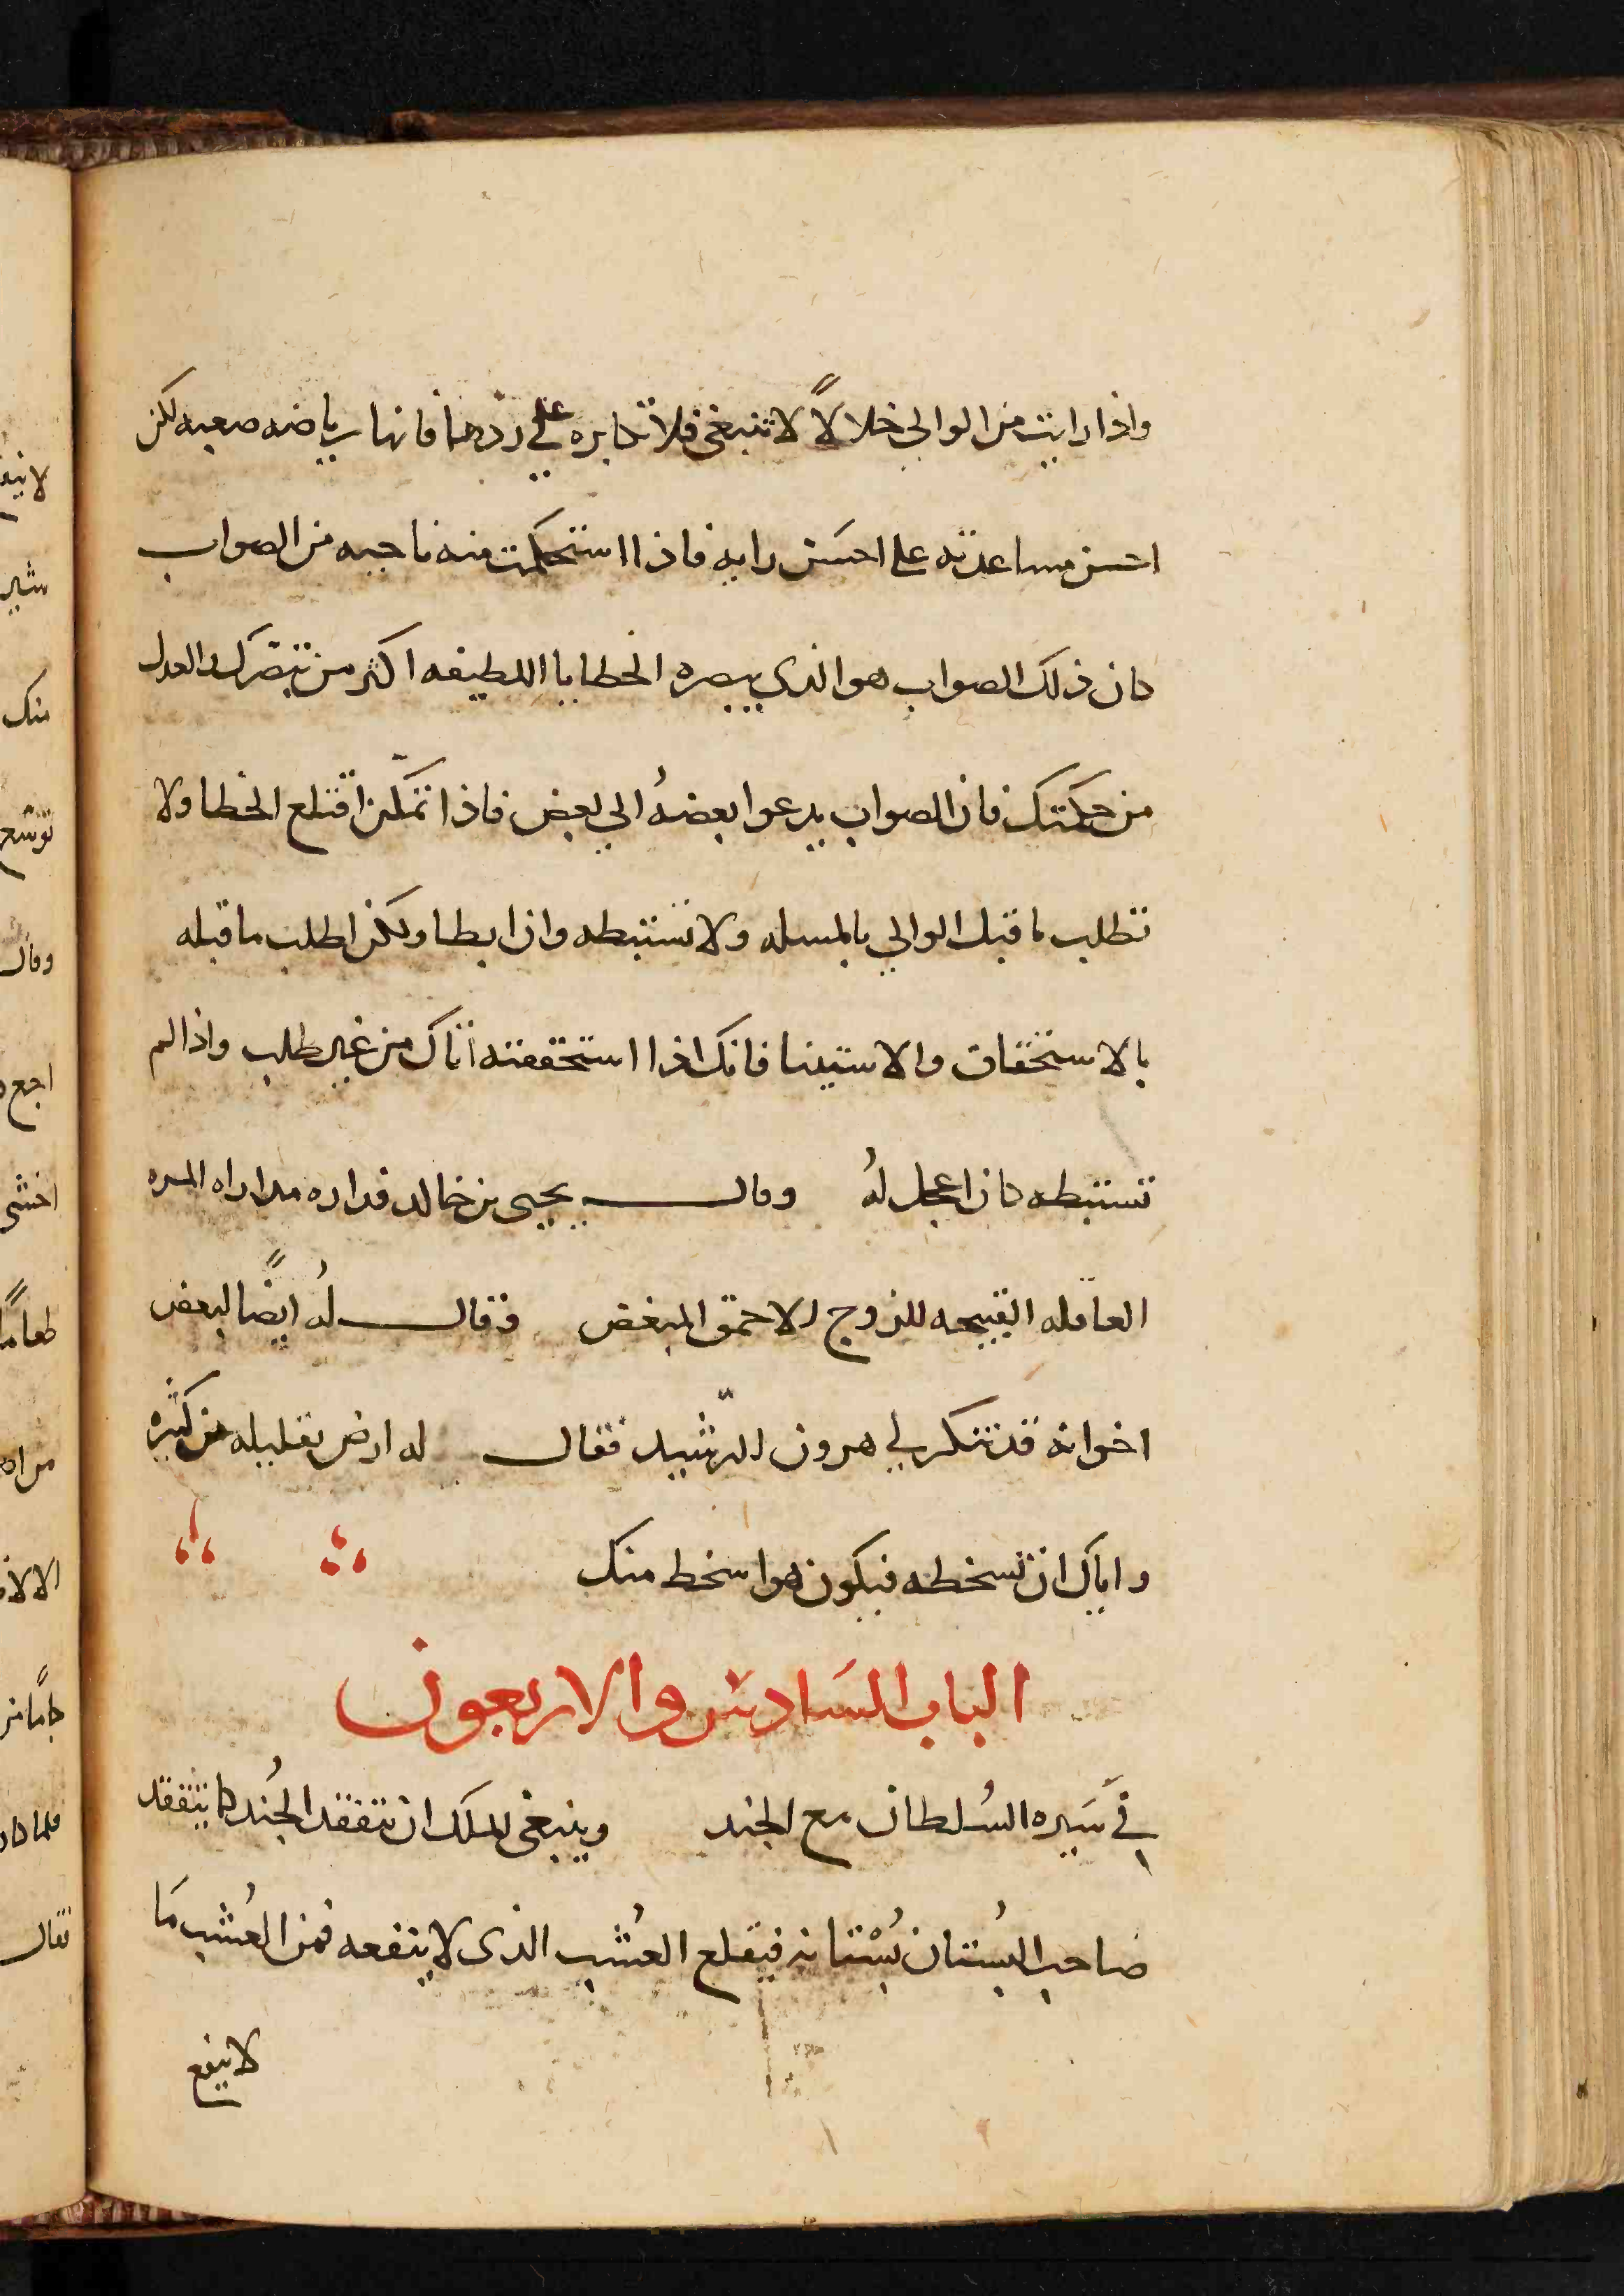 واذا رايت من الوالي خلالاً لا تنبغي فلا تكابره علي ردها فانها رياضه صعبه لكن
احسن مساعدته على احسن رايه فاذا استحكمت منه ناحيه من الصواب
كان ذلك الصواب هو الذي يبصره الخطايا اللطيفه اكثر من تبصرك والعدل
من حكمتك فان الصواب يدعوا بعضهُ الي بعض فاذا تمكّن اقتلع الخطا ولا
تطلب ما قبل الوالي بالمسله ولا تستبطه وان ابطا ولكن اطلب ما قبله
بالاستحقاق والاستينا فانك اذا استحققته اتاك من غير طلب واذا لم
تستبطه كان اعجل لهُ وقال يحيى بن خالد قداره مداراه المره
العاقله القبيحه للزوج الاحمق المبغض وقال لهُ ايضًا لبعض
اخوانه قد تنكر لي هرون الرّشيد فقال له ارض بقليله من كثيره
واياك ان تسخطه فيكون هو اسخط منك
الباب السَادس والاربعون
في سَيره السُلطان مع الجند وينبغي للملك ان يتفقد الجُند كما يتفقد
صاحب البُستان بُسْتانه فيقلع العُشب الذي لا ينفعه فمن العُشب مَا
لا ينفع